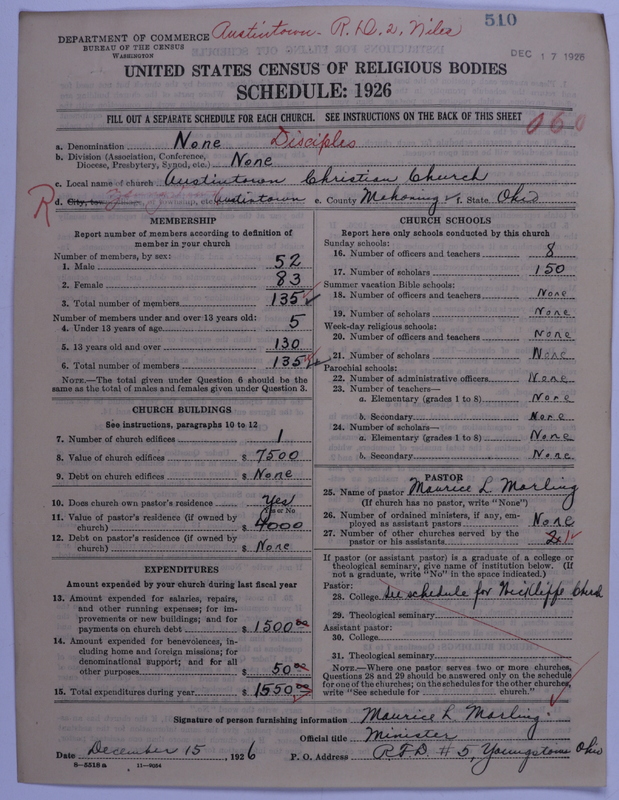 510
DEPARTMENT OF COMMERCE
BUREAU OF THE CENSUS
WASHINGTON
Austintown - R.D. 2, Niles
DEC 17 1926
UNITED STATES CENSUS OF RELIGIOUS BODIES
SCHEDULE: 1926
FILL OUT A SEPARATE SCHEDULE FOR EACH CHURCH. SEE INSTRUCTIONS ON THE BACK OF THIS SHEET
060
a. Denomination None Disciples
b. Division (Association, Conference, Diocese, Presbytery, Synod, etc.) None
c. Local name of church Austintown Christian Church
R
d. City, town, village, or township, etc. Austintown e. County Mahoning f. State Ohio
MEMBERSHIP
Report number of members according to definition of
member in your church
Number of members, by sex:
1. Male 52
2. Female 83
3. Total number of members 135
Number of members under and over 13 years old:
4. Under 13 years of age 5
5. 13 years old and over 130
6. Total number of members 135
NOTE.—The total given under Question 6 should be the
same as the total of males and females given under Question 3.
CHURCH BUILDINGS
See instructions, paragraphs 10 to 12
7. Number of church edifices 1
8. Value of church edifices $ 7500
9. Debt on church edifices $ None
10. Does church own pastor's residence Yes
Yes or No
11. Value of pastor's residence (if owned by
church) $ 4000
12. Debt on pastor's residence (if owned by
church) $ None
EXPENDITURES
Amount expended by your church during last fiscal year
13. Amount expended for salaries, repairs,
and other running expenses; for im-
provements or new buildings; and for
payments on church debt $ 1500 00
14. Amount expended for benevolences, in-
cluding home and foreign missions; for
denominational support; and for all
other purposes $ 50 00
15. Total expenditures during year $ 1550 00
CHURCH SCHOOLS
Report here only schools conducted by this church
Sunday schools:
16. Number of officers and teachers 8
17. Number of scholars 150
Summer vacation Bible schools:
18. Number of officers and teachers None
19. Number of scholars None
Week-day religious schools:
20. Number of officers and teachers None
21. Number of scholars None
Parochial schools:
22. Number of administrative officers None
23. Number of teachers—
a. Elementary (grades 1 to 8) None
b. Secondary None
24. Number of scholars—
a. Elementary (grades 1 to 8) None
b. Secondary None
PASTOR
25. Name of pastor Maurice L Marling
(If church has no pastor, write "None")
26. Number of ordained ministers, if any, em-
ployed as assistant pastors None
27. Number of other churches served by the
pastor or his assistants 1
If pastor (or assistant pastor) is a graduate of a college or
theological seminary, give name of institution below. (If
not a graduate, write "No" in the space indicated.)
Pastor:
28. College See schedule for Wickliffe Church
29. Theological seminary
Assistant pastor:
30. College
31. Theological seminary
NOTE.—Where one pastor serves two or more churches,
Questions 28 and 29 should be answered only on the schedule
for one of the churches; on the schedules for the other churches,
write "See schedule for church."
Signature of person furnishing information Maurice L. Marling.
Official title Minister
Date December 15, 1926 P. O. Address R.F.D. #5, Youngstown Ohio
8—5518 a 11—9034